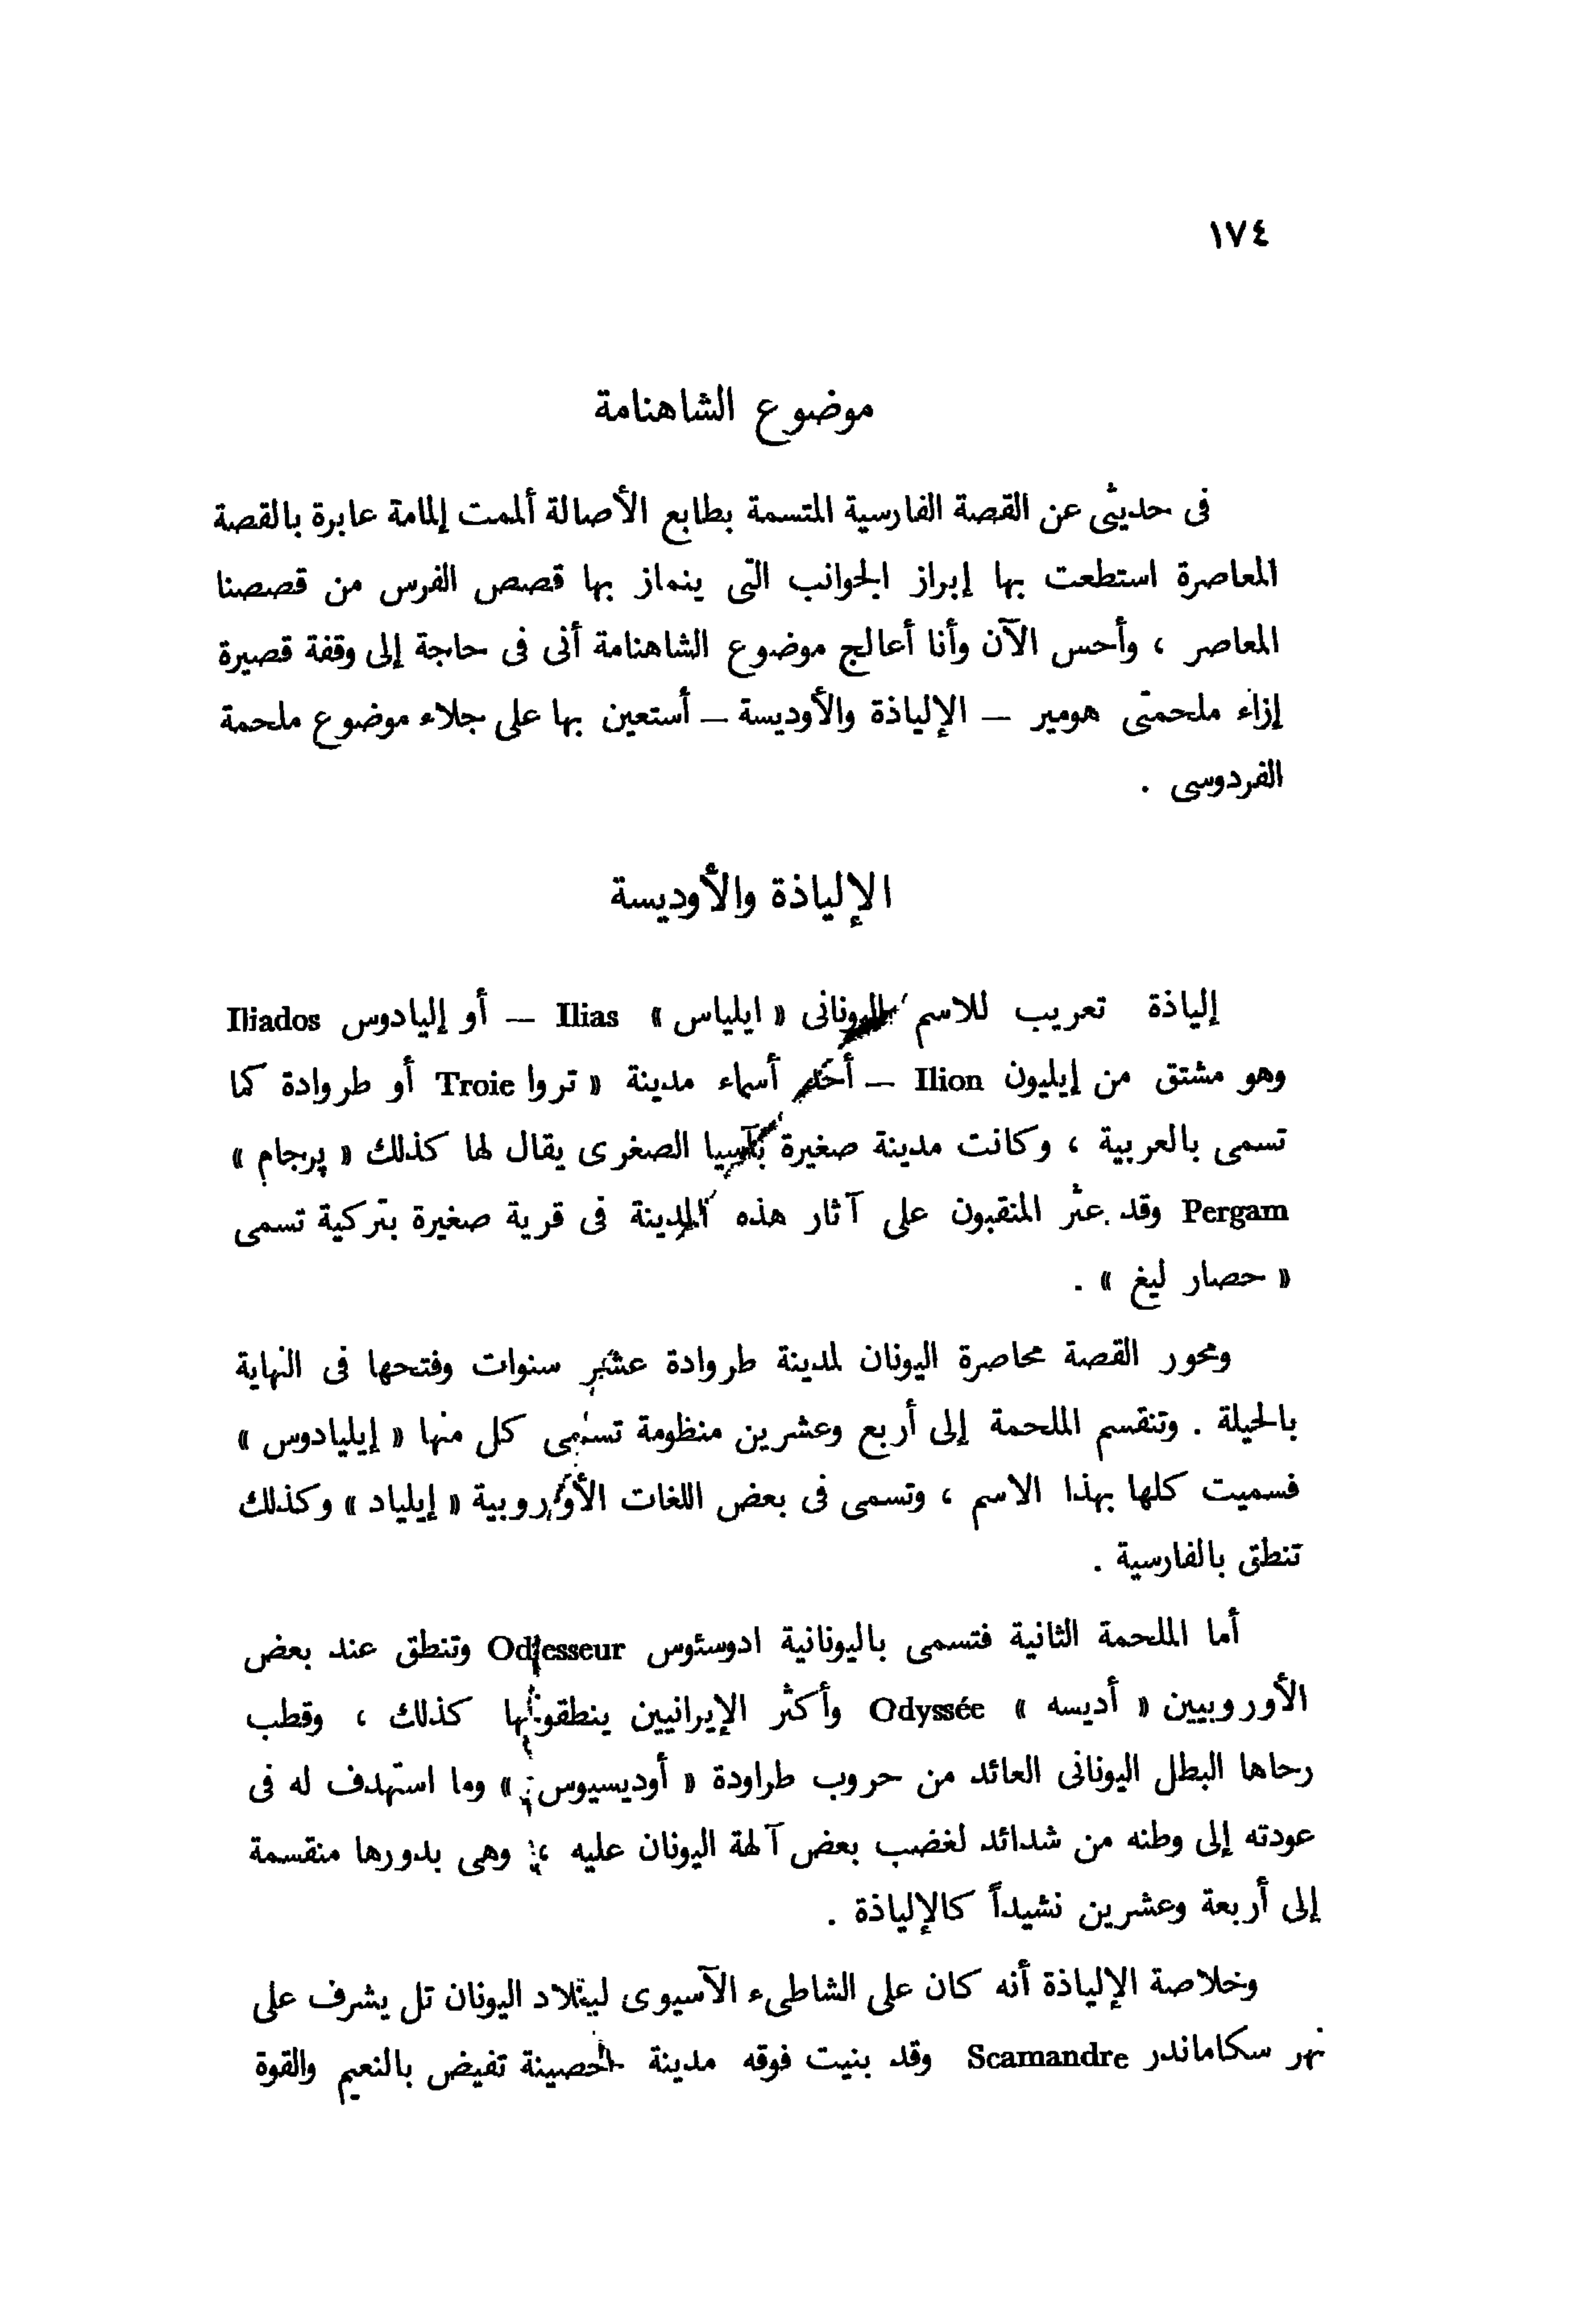 ١٧٤
موضوع الشاهنامة
فى حديثى عن القصة الفارسية المتسمة بطابع الأصالة ألممت إلمامة عابرة بالقصة
المعاصرة استطعت بها إبراز الجوانب التى ينماز بها قصص الفرس من قصصنا
المعاصر ، وأحس الآن وأنا أعالج موضوع الشاهنامة أنى فى حاجة إلى وقفة قصيرة
إزاء ملحمتى هومير – الإلياذة والأوديسة – أستعين بها على جلاء موضوع ملحمة
الفردوسى .
الإلياذة والأوديسة
إلياذة تعريب للاسم اليونانى « ايلياس » Ilias – أو إليادوس Iliados
وهو مشتق من إيليون Ilion – أحد أسماء مدينة « تروا Troie أو طروادة كما
تسمى بالعربية ، وكانت مدينة صغيرة بآسيا الصغرى يقال لها كذلك « پرجام »
Pergam وقد عثر المنقبون على آثار هذه المدينة فى قرية صغيرة بتركية تسمى
« حصار ليغ » .
ومحور القصة محاصرة اليونان لمدينة طروادة عشر سنوات وفتحها فى النهاية
بالحيلة . وتنقسم الملحمة إلى أربع وعشرين منظومة تسمى كل منها « إيليادوس »
فسميت كلها بهذا الاسم ، وتسمى فى بعض اللغات الأوروبية « إيلياد » وكذلك
تنطق بالفارسية .
أما الملحمة الثانية فتسمى باليونانية ادوسئوس Odyesseur وتنطق عند بعض
الأوروبيين « أديسه » Odyssée وأكثر الإيرانيين ينطقونها كذلك ، وقطب
رحاها البطل اليونانى العائد من حروب طراودة « أوديسيوس » وما استهدف له فى
عودته إلى وطنه من شدائد لغضب بعض آلهة اليونان عليه ، وهى بدورها منقسمة
إلى أربعة وعشرين نشيداً كالإلياذة .
وخلاصة الإلياذة أنه كان على الشاطىء الآسيوى لبلاد اليونان تل يشرف على
نهر سكاماندر Scamandre وقد بنيت فوقه مدينة حصينة تفيض بالنعيم والقوة